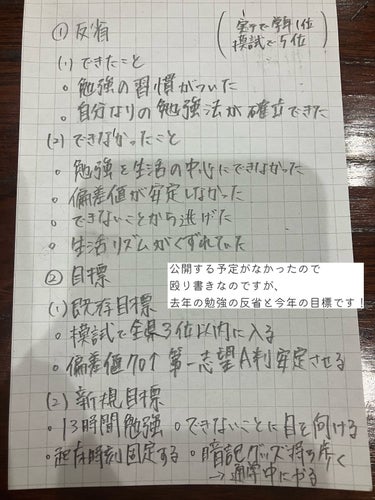 ① 反省
(実テで学年1位
模試で5位)
(1) できたこと
○ 勉強の習慣がついた
○ 自分なりの勉強法が確立できた
(2) できなかったこと
○ 勉強を生活の中心にできなかった
○ 偏差値が安定しなかった
○ できないことから逃げた
○ 生活リズムがくずれていた
② 目標
公開する予定がなかったので
殴り書きなのですが、
去年の勉強の反省と今年の目標です!
(1) 既存目標
○ 模試で全県3位以内に入る
○ 偏差値70↑ 第一志望A判安定させる
(2) 新規目標
○ 13時間勉強 ○ できないことに目を向ける
○ 起床時刻固定する ○ 暗記グッズ持ち歩く
→通学中にやる